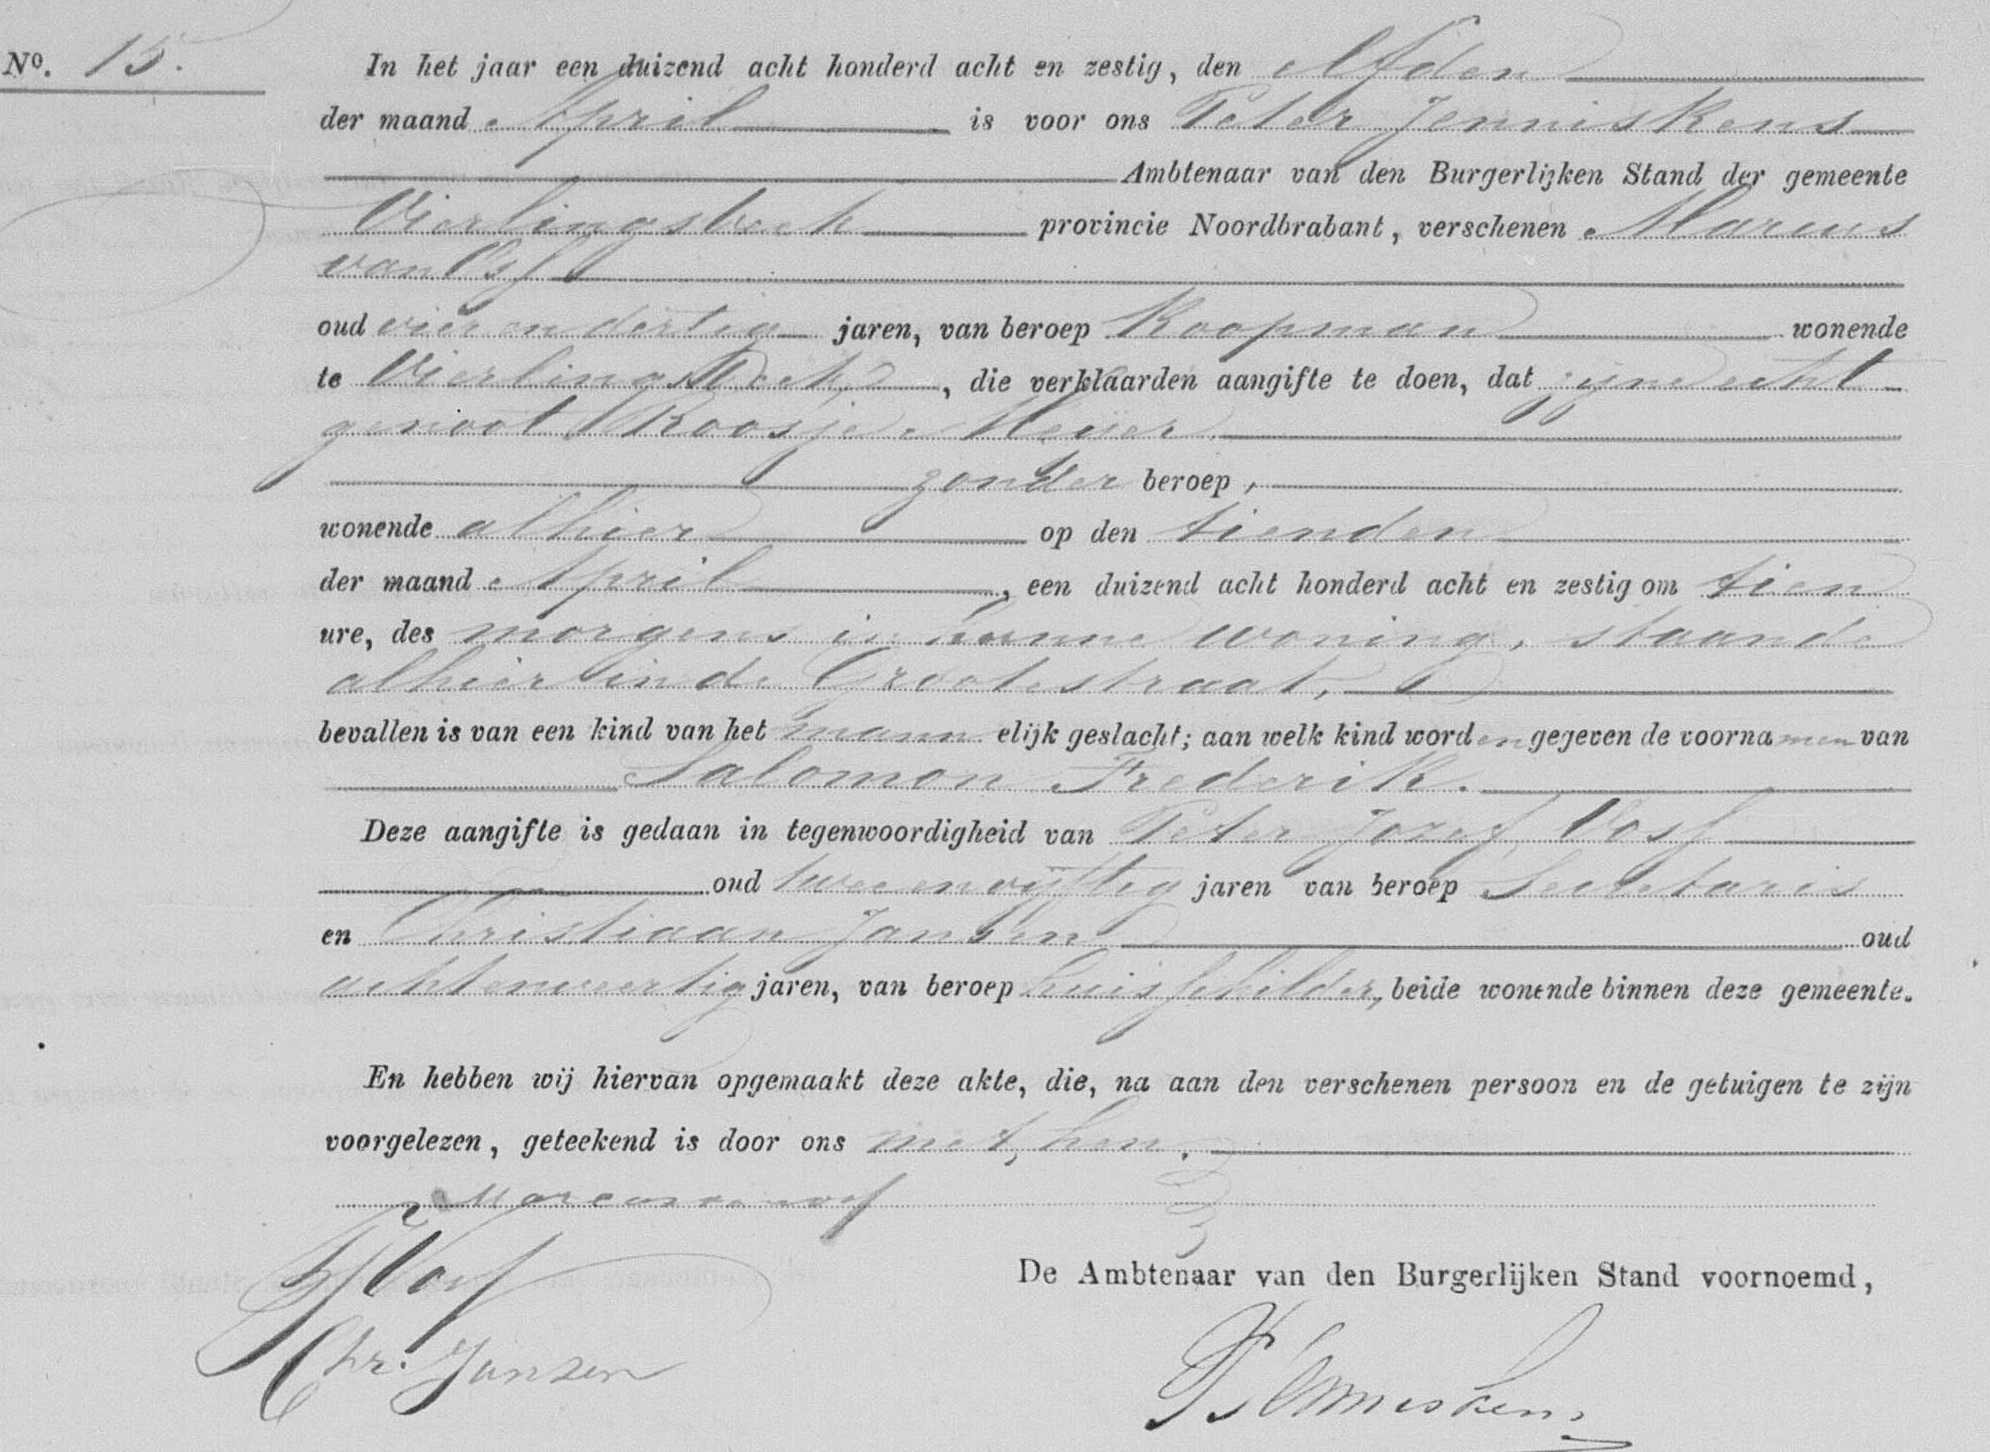 Nº. 15.
In het jaar een duizend acht honderd acht en zestig, den elfden
der maand April is voor ons Peter Jenniskens
Ambtenaar van den Burgerlijken Stand der gemeente
Vierlingsbeek provincie Noordbrabant, verschenen Marcus
van Os
oud vier en dertig jaren, van beroep Koopman wonende
te Vierlingsbeek, die verklaarden aangifte te doen, dat zijne echt
genoot Roosje Meijer
zonder beroep,
wonende alhier op den tienden
der maand April, een duizend acht honderd acht en zestig om tien
ure, des morgens in hunne woning, staande
alhier in de Grootestraat,
bevallen is van een kind van het mannelijk geslacht; aan welk kind worden gegeven de voornamen van
Salomon Frederik.
Deze aangifte is gedaan in tegenwoordigheid van Peter Jozef Vos
oud twee en vijftig jaren van beroep Secretaris
en Christiaan Jansen oud
achtenveertig jaren, van beroep huisschilder, beide wonende binnen deze gemeente.
En hebben wij hiervan opgemaakt deze akte, die, na aan den verschenen persoon en de getuigen te zijn
voorgelezen, geteekend is door ons met hen.
Marcus van os
De Ambtenaar van den Burgerlijken Stand voornoemd,
PJVos
Chr. Janzen
P Jenniskens